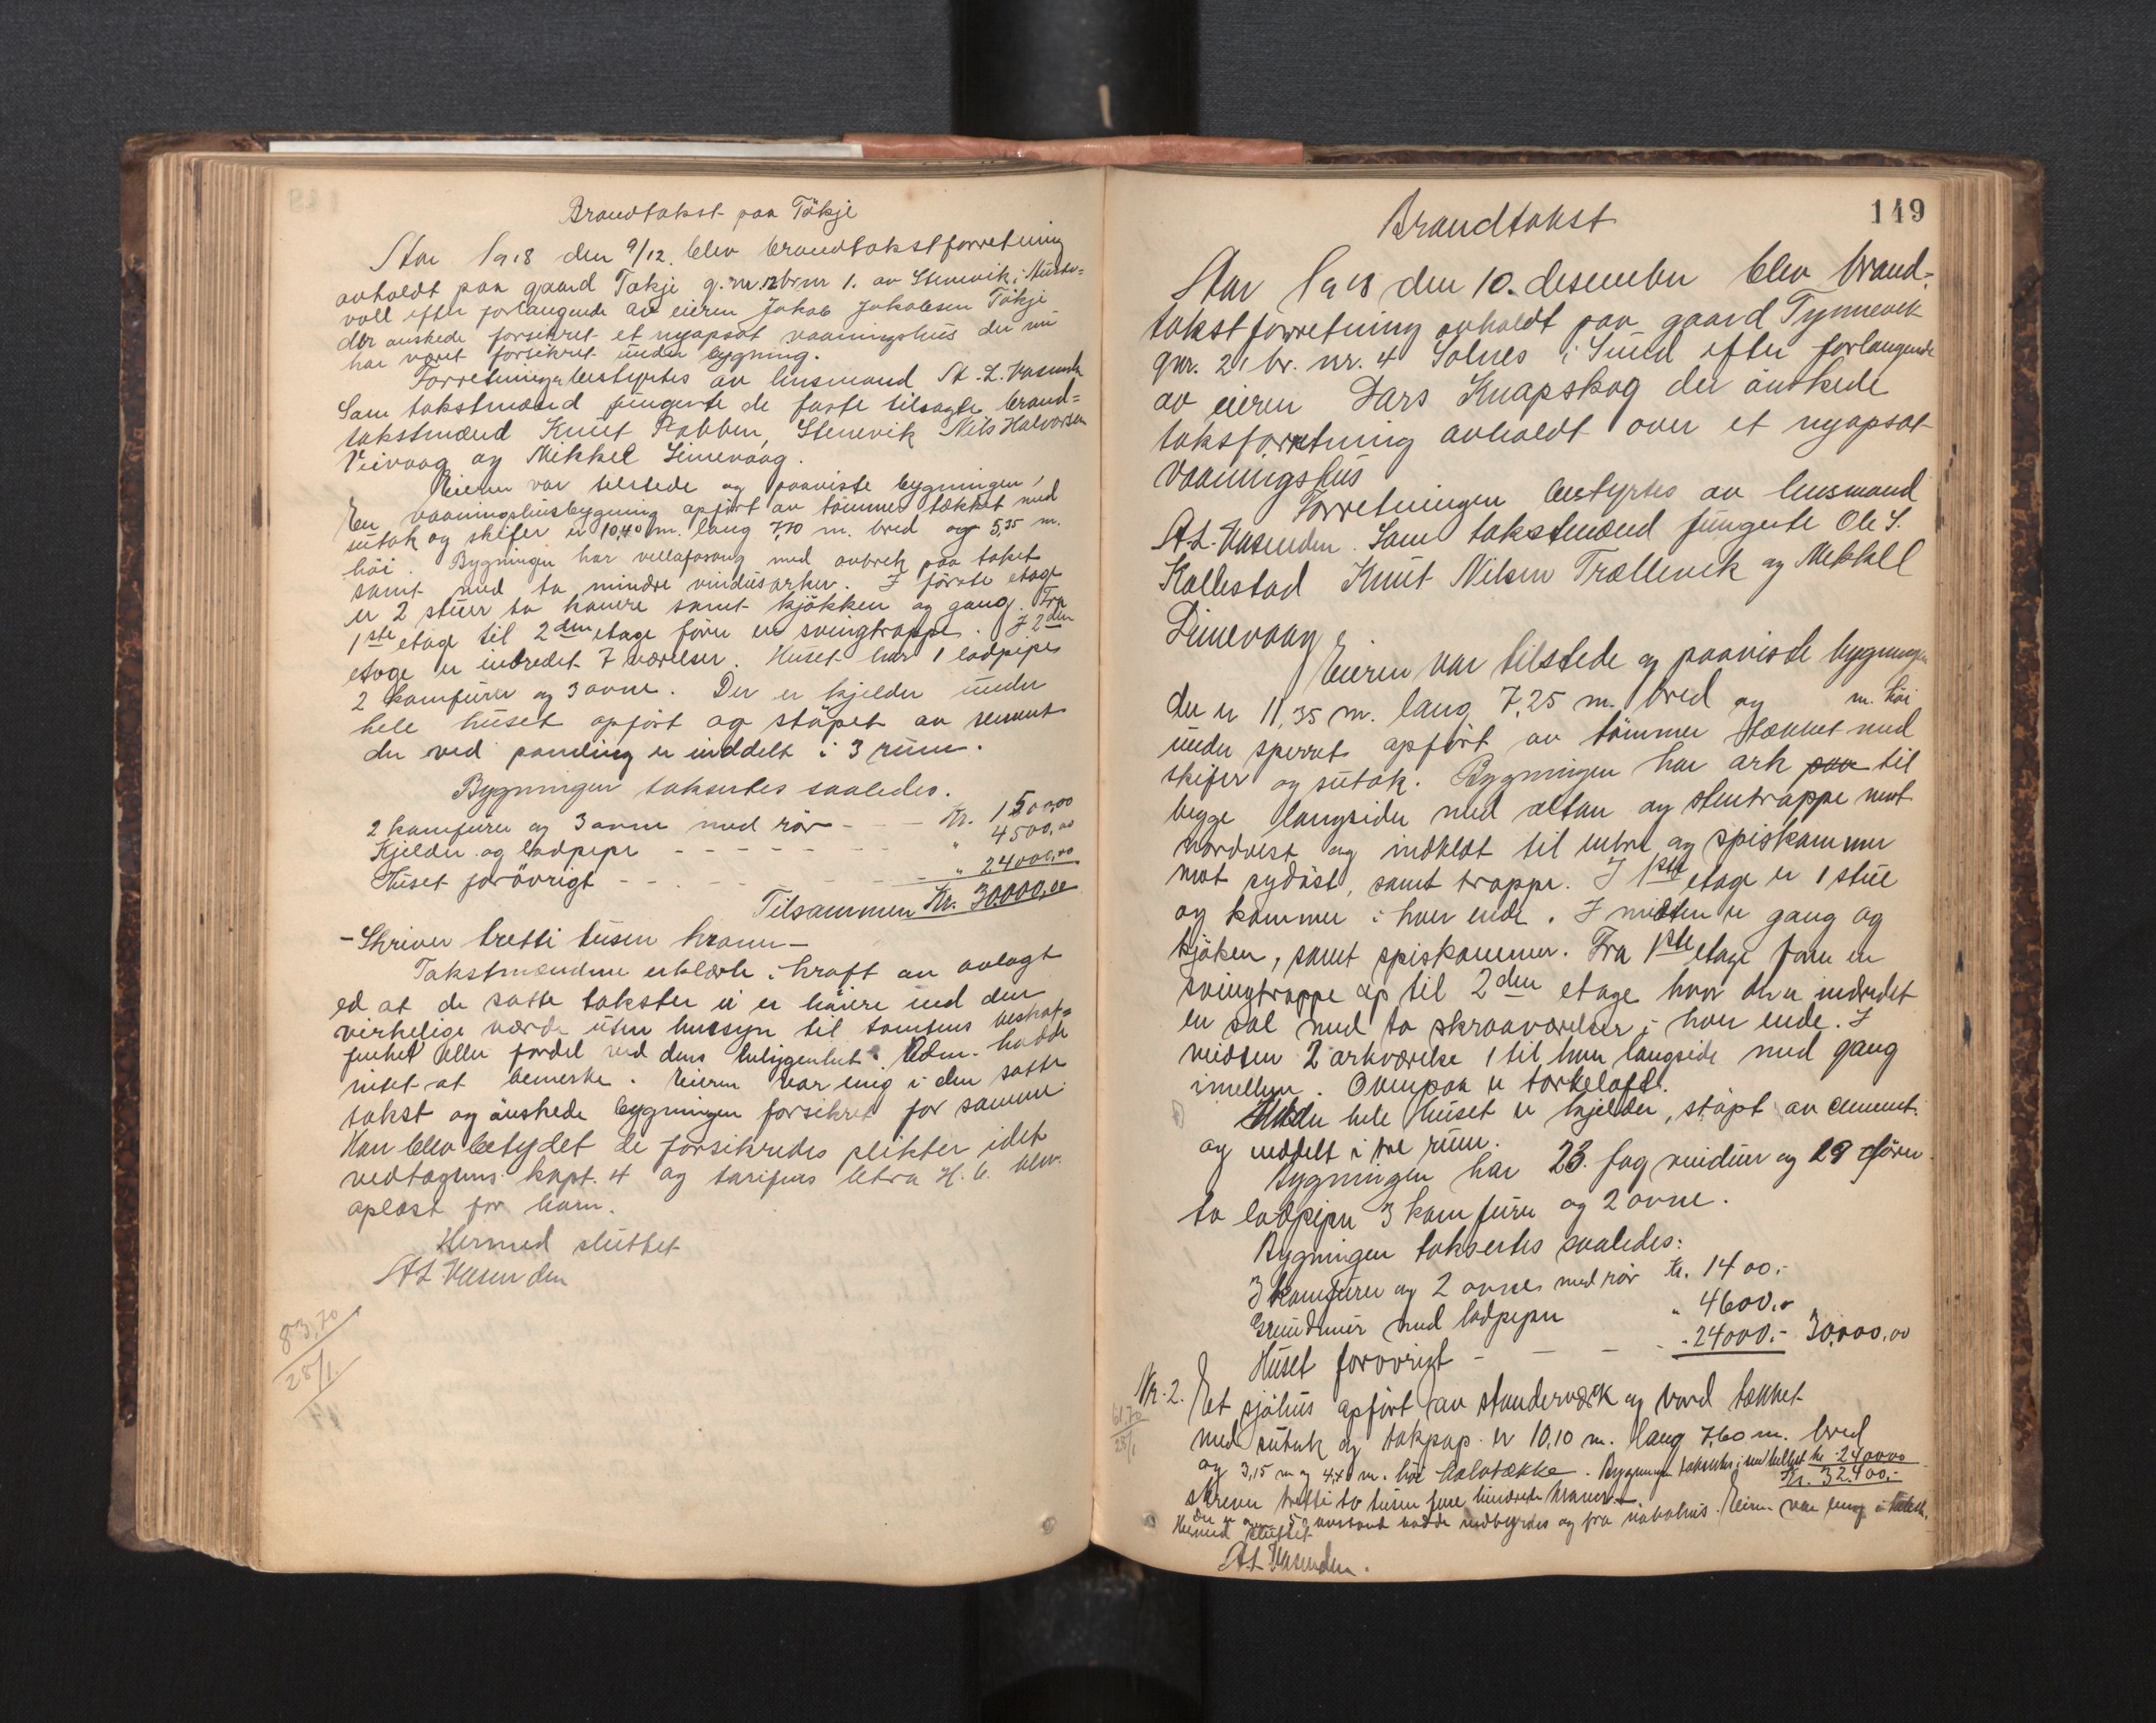 Brandtakst paa Tökje
Aar 1918 den 9/12. blev brandtakstforretning
avholdt paa gaard Tökje g.nr. br nr 1. av Steinevik i Auste-
voll efter forlangende av eieren Jakob Jakobsen Tökje
der önskede forsikret et nyopsat vaaningshus der nu
har været forsikret under bygning.
Forretningen bestyrtes av lensmand A. L. Vasenden
Som takstmænd fungerte de faste tilsagte brand-
takstmænd Knut Rabben, Stenevik Nils Halvorsen
Veivaag og Mikkel Limevaag.
Eieren var tilstede og paaviste bygningen,
En vaaningshusbygning opfört av tömmer tækket med
sutak og skifer er 10,40 m. lang 7,70 m. bred og 5,35 m.
höi. Bygningen har villafasong med avbrek paa taket
samt med to mindre vindusarker. I förste etage
er 2 stuer to kamre samt kjökken og gang. Fra
1ste etage til 2den etage förer en svingtrappe. I 2den
etage er indredet 7 værelser. Huset har 1 ladpipe
2 kamfurer og 3 ovne. Der er kjelder under
hele huset opfört og stöpet av sement
der ved panding er inddelt i 3 rum.
Bygningen taksertes saaledes.
2 kamfurer og 3 ovne med rör - - - Kr. 1500,00
Kjelder og ladpipe - - - - - - " 4500,00
Huset forövrigt - - - - - - " 24000,00
Tilsammen Kr. 30.000,00
- Skriver tretti tusen kroner -
Takstmændene erklærte i kraft av avlagt
ed at de satte takster ei er höiere end den
virkelige værdi uten hensyn til tomtens beskaf-
fenhet eller fordel ved dens beliggenhet. Adm. hadde
intet at bemerke. Eieren var enig i den satte
takst og önskede bygningen forsikret for samme
Han blev betydet de forsikredes plikter idet
vedtægtens kapt. 4 og tarifens litra H. b. blev
oplæst for ham.
Hermed sluttet
A L Vasenden
83,70
28/1.
149
Brandtakst
Aar 1918 den 10. desember blev brand-
takstforretning avholdt paa gaard Tynnevik
gnr. 21 br. nr. 4 Solnes i Sund efter forlangende
av eieren Lars Knapskog der önskede
taksforretning avholdt over et nyopsat
vaaningshus
Forretningen bestyrtes av lensmand
A.L. Vasenden. Som takstmænd fungerte Ole S.
Kallestad Knut Nilsen Trællevik og Mikkel
Limevaag.
Eieren var tilstede og paaviste bygningen
der er 11,35 m. lang 7,25 m. bred og m. höi
under sperret opfört av tömmer tækket med
skifer og sutak. Bygningen har ark paa til
begge langsider med altan og stentrappe mot
nordvest og indbldt til entre og spiskammer
mot sydöst, samt trappe. I 1ste etage er 1 stue
og kammer i hver ende. I midten er gang og
kjöken, samt spiskammer. Fra 1ste etage förer en
svingtrappe op til 2den etage hvor der er indredet
en sal med to skraaværelser i hver ende. I
midten 2 arkværelse 1 til hver langside med gang
imellem. Ovenpaa er törkeloft.
Under hele huset er kjelder, stöpt av cement.
og inddelt i tre rum.
Bygningen har 23. fag vinduer og 29 dörer.
to ladpiper 3 kamfurer og 2 ovne.
Bygningen taksertes saaledes:
3 kamfurer og 2 ovnes med rör Kr. 1400.-
Grundmur med ladpiper " 4600.-
Huset forovrigt - - - - 24000.- 30,000,00
Nr. 2. Et sjöhus opfört av stenderværk og bord tækket
61,70
28/1
med sutak og takpap er 10,10 m. lang 7,60 m. bred
og 3,15 m og 4,40 m. höi halvtække. Bygningen taksertes i sin helhet kr. 2400.00
Kr. 32.400.-
skriver tretti to tusen fire hundrede kroner.
Der er over 5 m avstand badde indbyrdes og fra nabohus. Eieren var enig i takst.
Hermed sluttet
A L Vasenden.